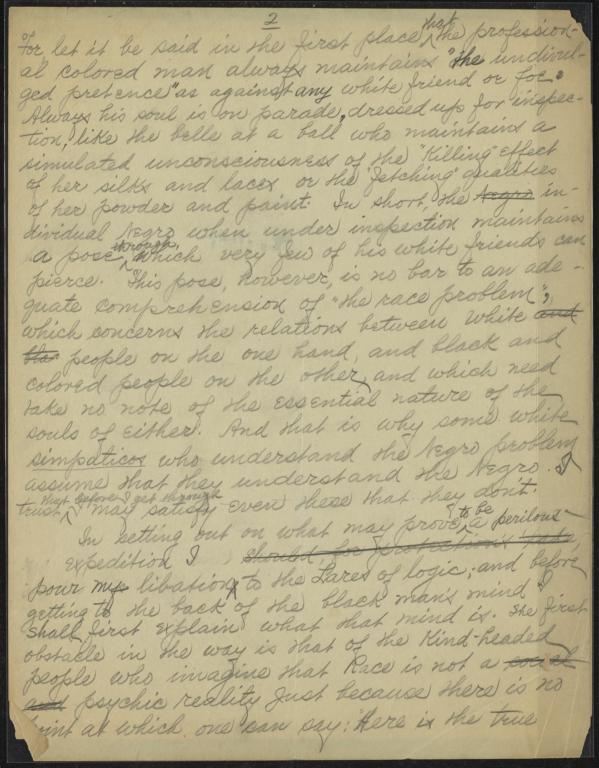 2
For let it be said in the first place that the profession-
al colored man always maintains "the undivul-
ged pretence" as against any white friend or foe.
Always his soul is on parade, dressed up for inspec-
tion, like the belle at a ball who maintains a
simulated unconsciousness of the "killing" effect
of her silks and laces or the "fetching" qualities
of her powder and paint. In short, the Negro in-
dividual Negro when under inspection maintains
a pose through which very few of his white friends can
pierce. This pose, however, is no bar to an ade-
quate comprehension of "the race problem",
which concerns the relations between White and
bla- people on the one hand, and black and
colored people on the other, and which need
take no note of the essential nature of the
souls of either. And that is why some white
simpaticos who understand the Negro problem
assume that they understand the Negro. I
trust that before I get through I may satisfy even these that they don't.
In setting out on what may prove to be a perilous
expedition I should, for protection's sake,
pour my libation to the Lares of logic; and before
getting to the back of the black man's mind I
shall first explain what that mind is. The first
obstacle in the way is that of the kind-headed
people who imagine that Race is not a social
and psychic reality just because there is no
point at which one can say: Here is the true